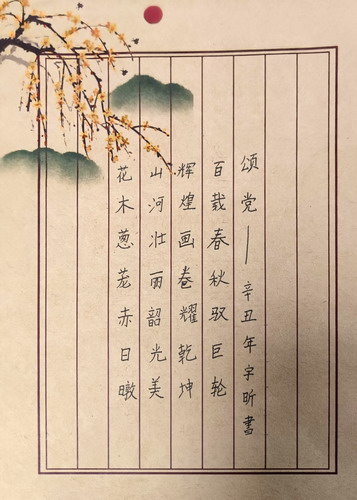 颂党——辛丑年宇昕书
百载春秋驭巨轮
辉煌画卷耀乾坤
山河壮丽韶光美
花木葱茏赤日暾